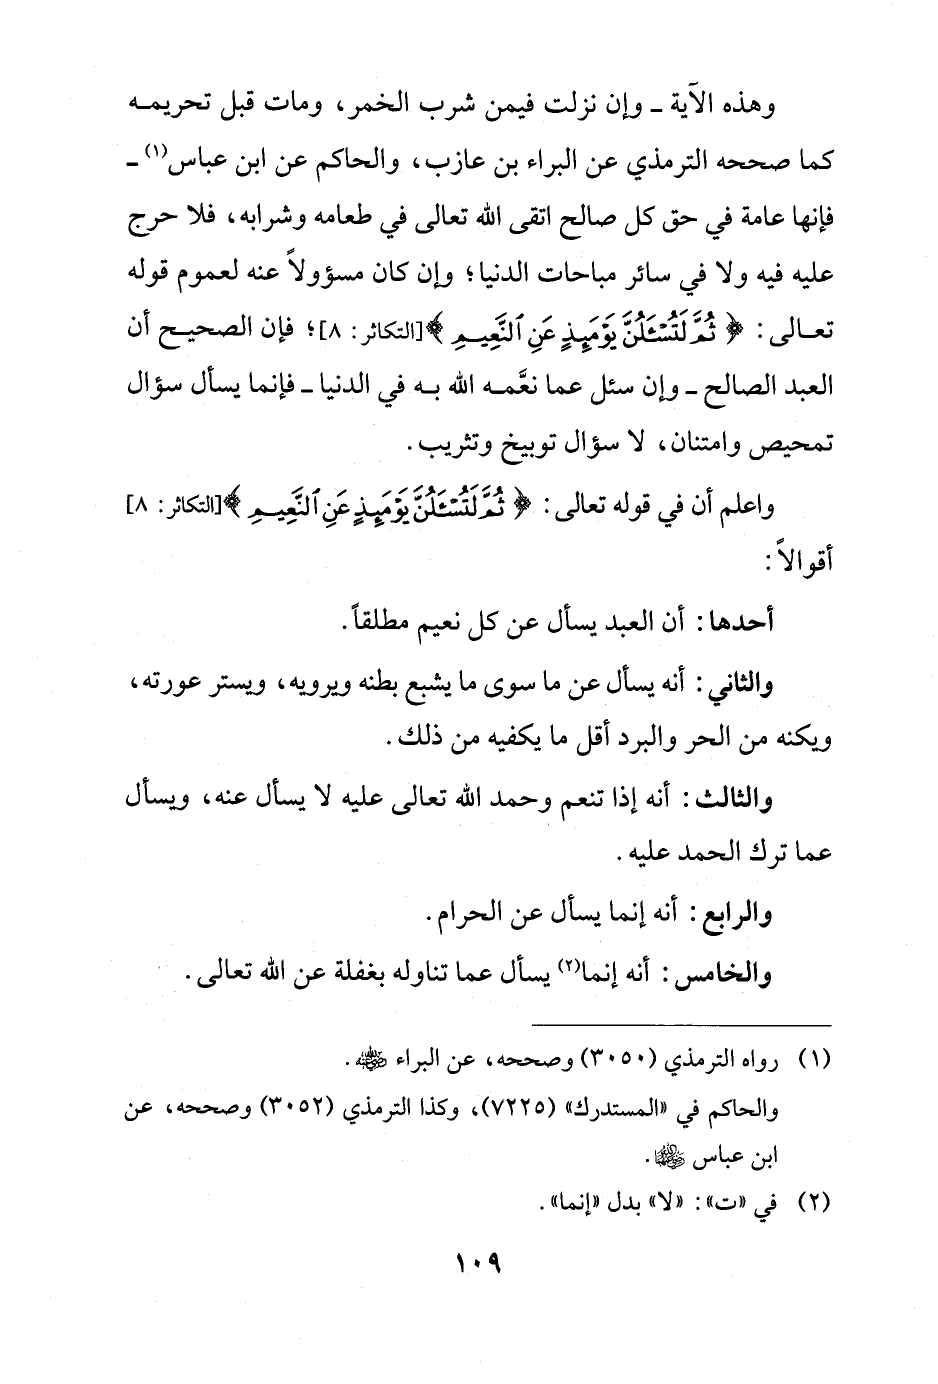 وهذه الآية ـ وإن نزلت فيمن شرب الخمر، ومات قبل تحريمه
كما صححه الترمذي عن البراء بن عازب، والحاكم عن ابن عباس(١) ـ
فإنها عامة في حق كل صالح اتقى الله تعالى في طعامه وشرابه، فلا حرج
عليه فيه ولا في سائر مباحات الدنيا؛ وإن كان مسؤولاً عنه لعموم قوله
تعالى: ﴿ثُمَّ لَتُسْـَٔلُنَّ يَوْمَئِذٍ عَنِ ٱلنَّعِيمِ﴾[التكاثر: ٨]؛ فإن الصحيح أن
العبد الصالح ـ وإن سئل عما نعَّمه الله به في الدنيا ـ فإنما يسأل سؤال
تمحيص وامتنان، لا سؤال توبيخ وتثريب.
واعلم أن في قوله تعالى: ﴿ثُمَّ لَتُسْـَٔلُنَّ يَوْمَئِذٍ عَنِ ٱلنَّعِيمِ﴾[التكاثر: ٨]
أقوالاً:
أحدها: أن العبد يسأل عن كل نعيم مطلقاً.
والثاني: أنه يسأل عن ما سوى ما يشبع بطنه ويرويه، ويستر عورته،
ويكنه من الحر والبرد أقل ما يكفيه من ذلك.
والثالث: أنه إذا تنعم وحمد الله تعالى عليه لا يسأل عنه، ويسأل
عما ترك الحمد عليه.
والرابع: أنه إنما يسأل عن الحرام.
والخامس: أنه إنما(٢) يسأل عما تناوله بغفلة عن الله تعالى.
(١) رواه الترمذي (٣٠٥٠) وصححه، عن البراء رضي الله عنه.
والحاكم في «المستدرك» (٧٢٢٥)، وكذا الترمذي (٣٠٥٢) وصححه، عن
ابن عباس رضي الله عنهما.
(٢) في «ت»: «لا» بدل «إنما».
١٠٩